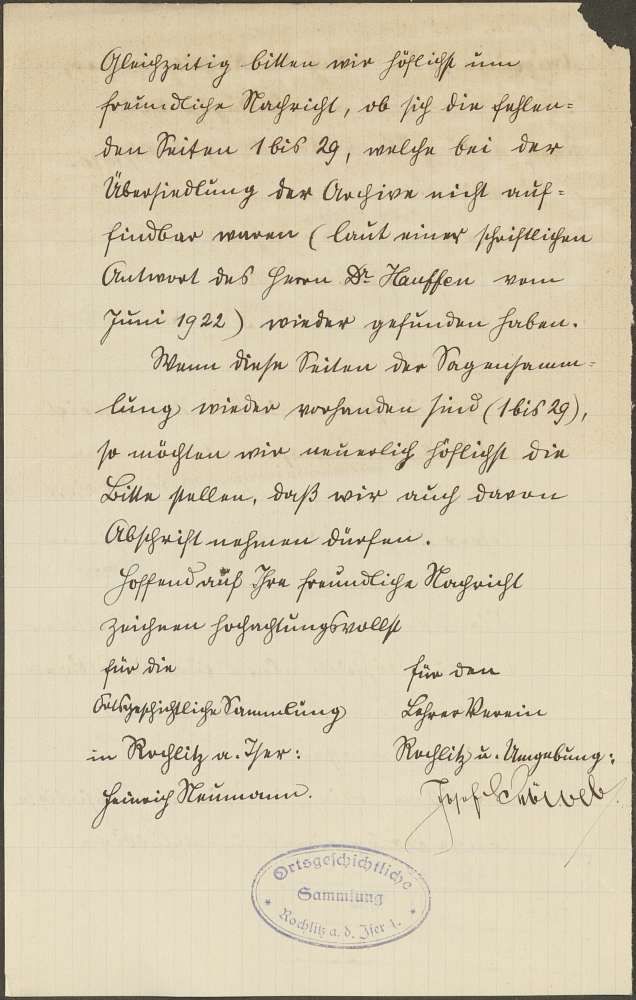 Gleichzeitig bitten wir höflichst um
freundliche Nachricht, ob sich die fehlen=
den Seiten 1 bis 29, welche bei der
Übersiedlung der Archive nicht auf=
findbar waren (laut einer schriftlichen
Antwort des Herrn Dr. Hauffen vom
Juni 1922) wieder gefunden haben.
Wenn diese Seiten der Sagensamm=
lung wieder vorhanden sind (1 bis 29),
so möchten wir neuerlich höflichst die
Bitte stellen, daß wir auch davon
Abschrift nehmen dürfen.
Hoffend auf Ihre freundliche Nachricht
zeichnen hochachtungsvollst
für die
Ortsgeschichtliche Sammlung
in Rochlitz a. Iser:
Heinrich Neumann.
für den
Lehrer Verein
Rochlitz u. Umgebung:
Josef
Ortsgeschichtliche
Sammlung
* Rochlitz a. d. Iser 1. *